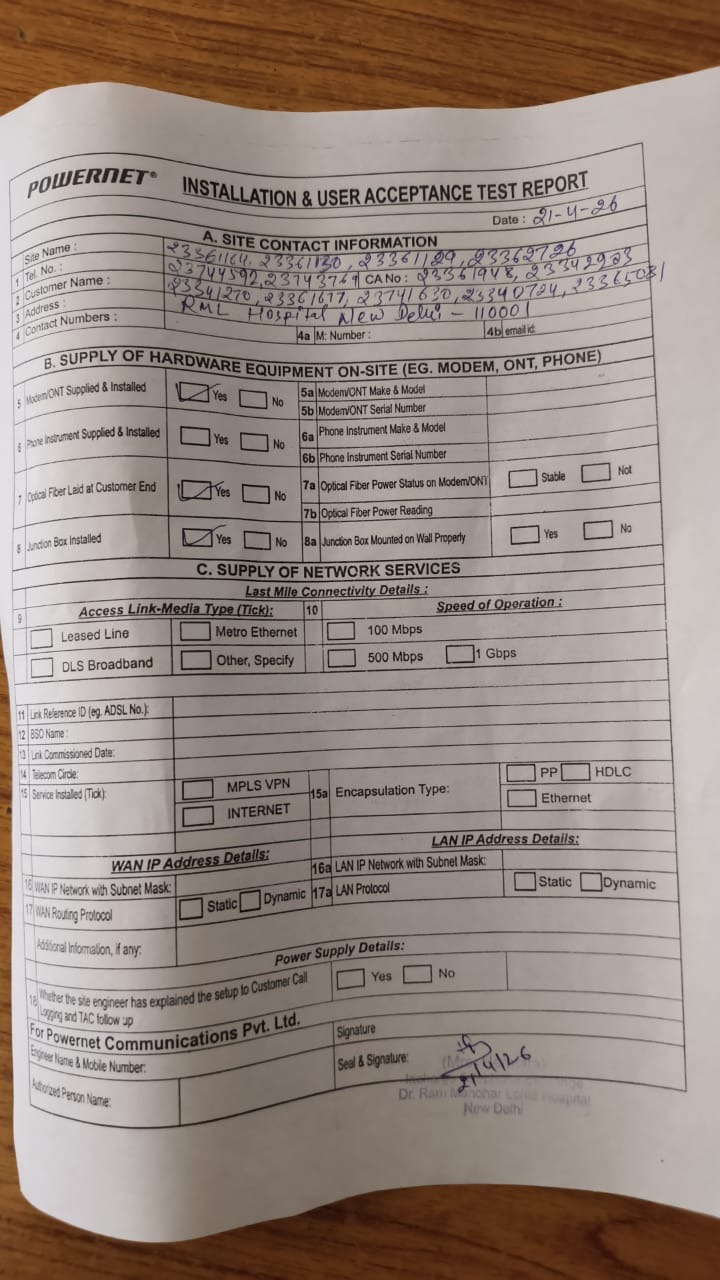 POWERNET®
INSTALLATION & USER ACCEPTANCE TEST REPORT
Date : 21-4-26
A. SITE CONTACT INFORMATION
Site Name :
23361164, 23361130, 23361129, 23362726
1 Tel. No. :
23744592, 23743769 CA No : 23361948, 23342923
2 Customer Name :
23341270, 23361677, 23741630, 23340724, 23365031
3 Address :
RML Hospital New Delhi - 110001
4 Contact Numbers :
4a M: Number :
4b email id:
B. SUPPLY OF HARDWARE EQUIPMENT ON-SITE (EG. MODEM, ONT, PHONE)
5 Modem/ONT Supplied & Installed Yes No 5a Modem/ONT Make & Model
5b Modem/ONT Serial Number
6 Phone Instrument Supplied & Installed Yes No 6a Phone Instrument Make & Model
6b Phone Instrument Serial Number
7 Optical Fiber Laid at Customer End Yes No 7a Optical Fiber Power Status on Modem/ONT Stable Not
7b Optical Fiber Power Reading
8 Junction Box Installed Yes No 8a Junction Box Mounted on Wall Properly Yes No
C. SUPPLY OF NETWORK SERVICES
Last Mile Connectivity Details :
9 Access Link-Media Type (Tick): 10 Speed of Operation :
Leased Line Metro Ethernet 100 Mbps
DLS Broadband Other, Specify 500 Mbps 1 Gbps
11 Link Reference ID (eg. ADSL No.):
12 BSO Name :
13 Link Commissioned Date:
14 Telecom Circle:
15 Service Installed (Tick): MPLS VPN 15a Encapsulation Type: PP HDLC
INTERNET Ethernet
WAN IP Address Details: LAN IP Address Details:
16 WAN IP Network with Subnet Mask: 16a LAN IP Network with Subnet Mask:
17 WAN Routing Protocol Static Dynamic 17a LAN Protocol Static Dynamic
Additional Information, if any:
Power Supply Details:
18 Whether the site engineer has explained the setup to Customer Call Yes No
Logging and TAC follow up
For Powernet Communications Pvt. Ltd.
Signature
Engineer Name & Mobile Number:
Seal & Signature:
21/4/26
Authorized Person Name:
Dr. Ram Manohar Lohia Hospital
New Delhi